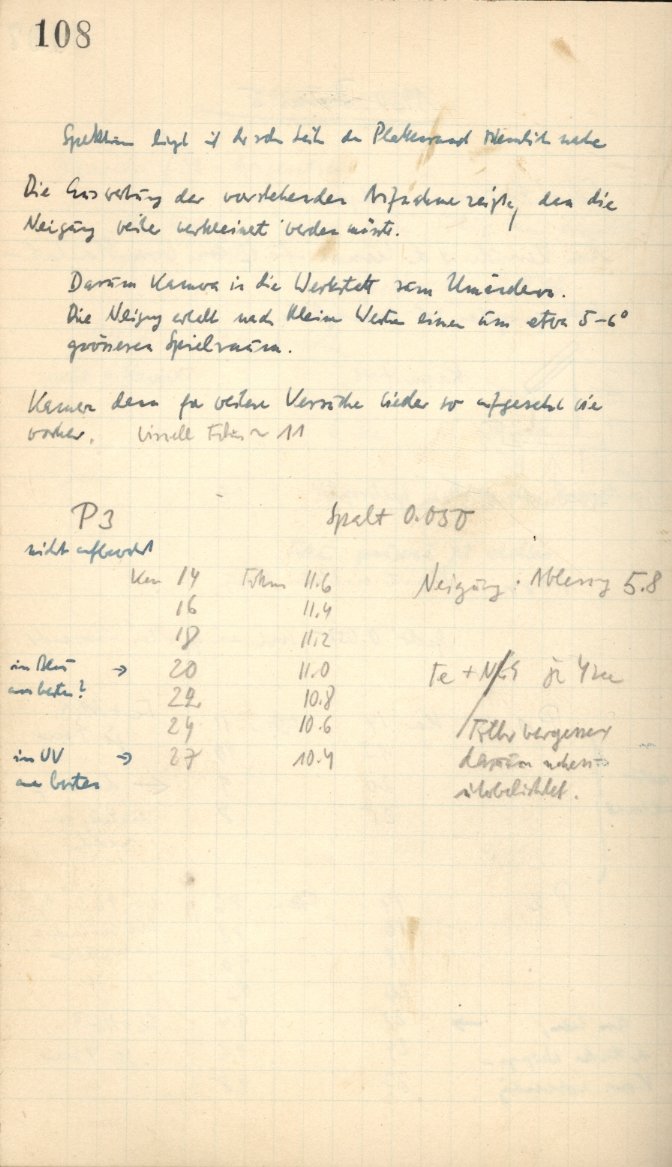 108
Spektrum liegt auf der roten Seite dem Plattenrand ziemlich nahe
Die Auswertung der vorstehenden Aufnahme zeigte, dass die
Neigung weiter verkleinert werden müsste.
Darum Kamera in die Werkstatt zum Umändern.
Die Neigung erhält nach kleinen Werten einen um etwa 5-6°
grösseren Spielraum.
Kamera dann für weitere Versuche wieder so aufgesetzt wie
vorher. visuell Fokus ~ 11
P3 Spalt 0.050
nicht aufbewahrt
Kam 14 Fokus 11.6 Neigung: Ablesung 5.8
16 11.4
18 11.2
im Blau → 20 11.0 Fe + je 4
am besten?
22 10.8
24 10.6 Filter vergessen
im UV → 27 10.4 darum
am besten überbelichtet.